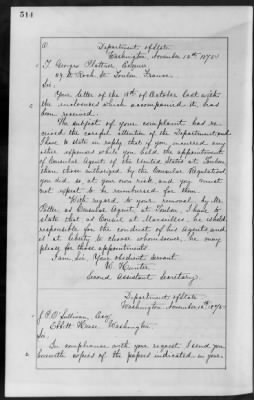 514
Department of State
Washington, November 12th 1875.
George Plattner, Esquire
St. Roch St. Toulon France.
Sir,
Your letter of the of October last with
the enclosures which accompanied it, has
been received.
The subject of your complaint has re-
ceived the careful attention of the Department, and
I have to state in reply, that if you incurred any
other expenses while you held the appointment
of Consular Agent of the United States at Toulon
than those authorized by the Consular Regulations
you did so, at your own risk and you must
not expect to be reimbursed for them.
With regard to your removal, by Mr.
as Consular Agent, at Toulon, I have to
state that as Consul at Marseilles, he is held
responsible for the conduct of his Agents, and
is at liberty to choose whomsoever, he may
please for those appointments.
I am Sir, Your obedient Servant
W. Hunter
Second Assistant Secretary.
Department of State
Washington, November 1875.
J. P. O'Sullivan, Esq.
Ebbitt House, Washington.
Sir,
In compliance with your request I send you
herewith copies of the papers indicated in your